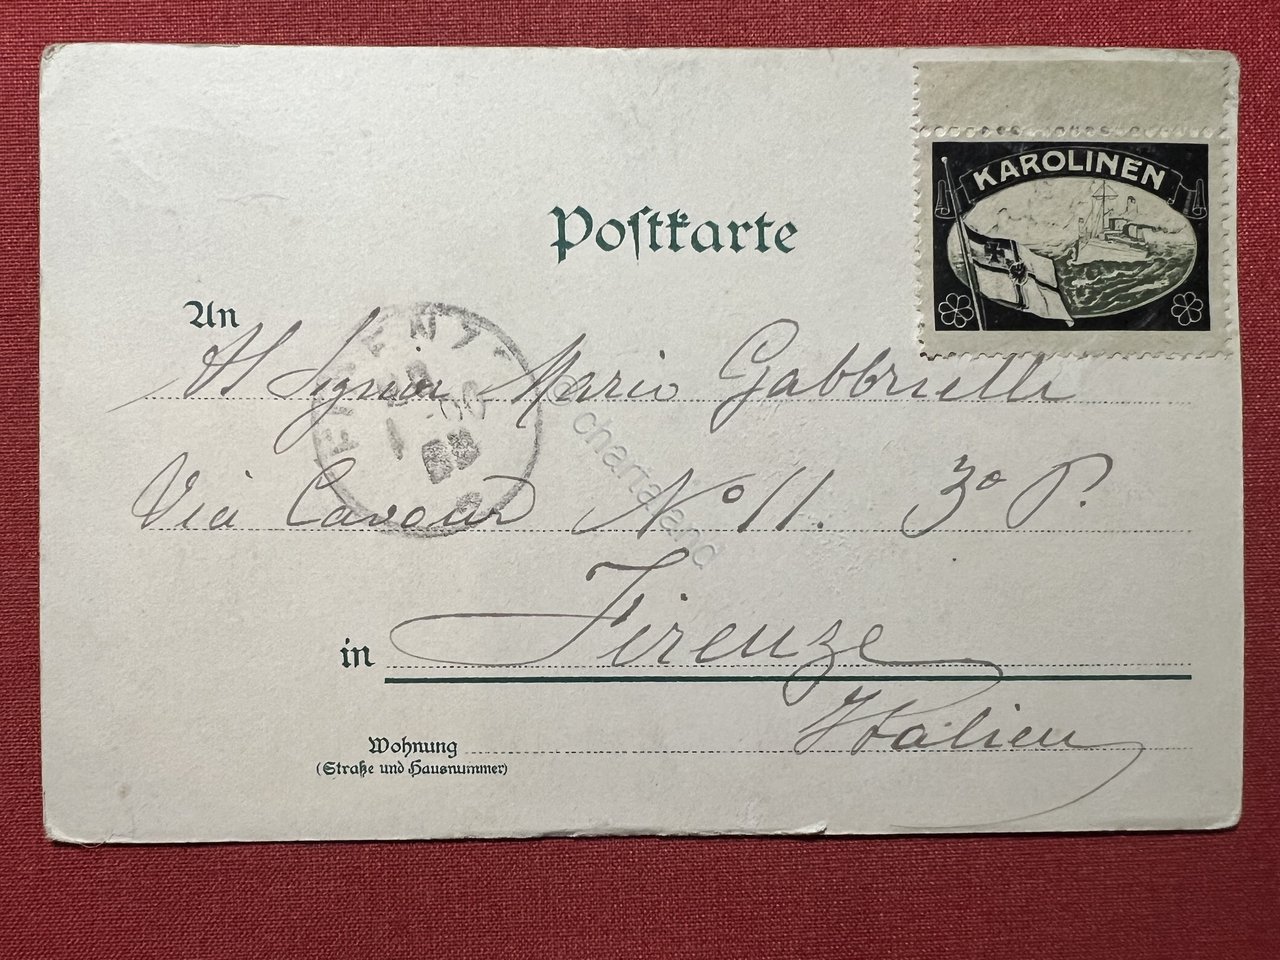 KAROLINEN
Postkarte
An
Al Signor Mario Gabbrielli
FIRENZE
Via Cavour No 11. 3o P.
© chartaland
in Firenze
Italien
Wohnung
(Straße und Hausnummer)